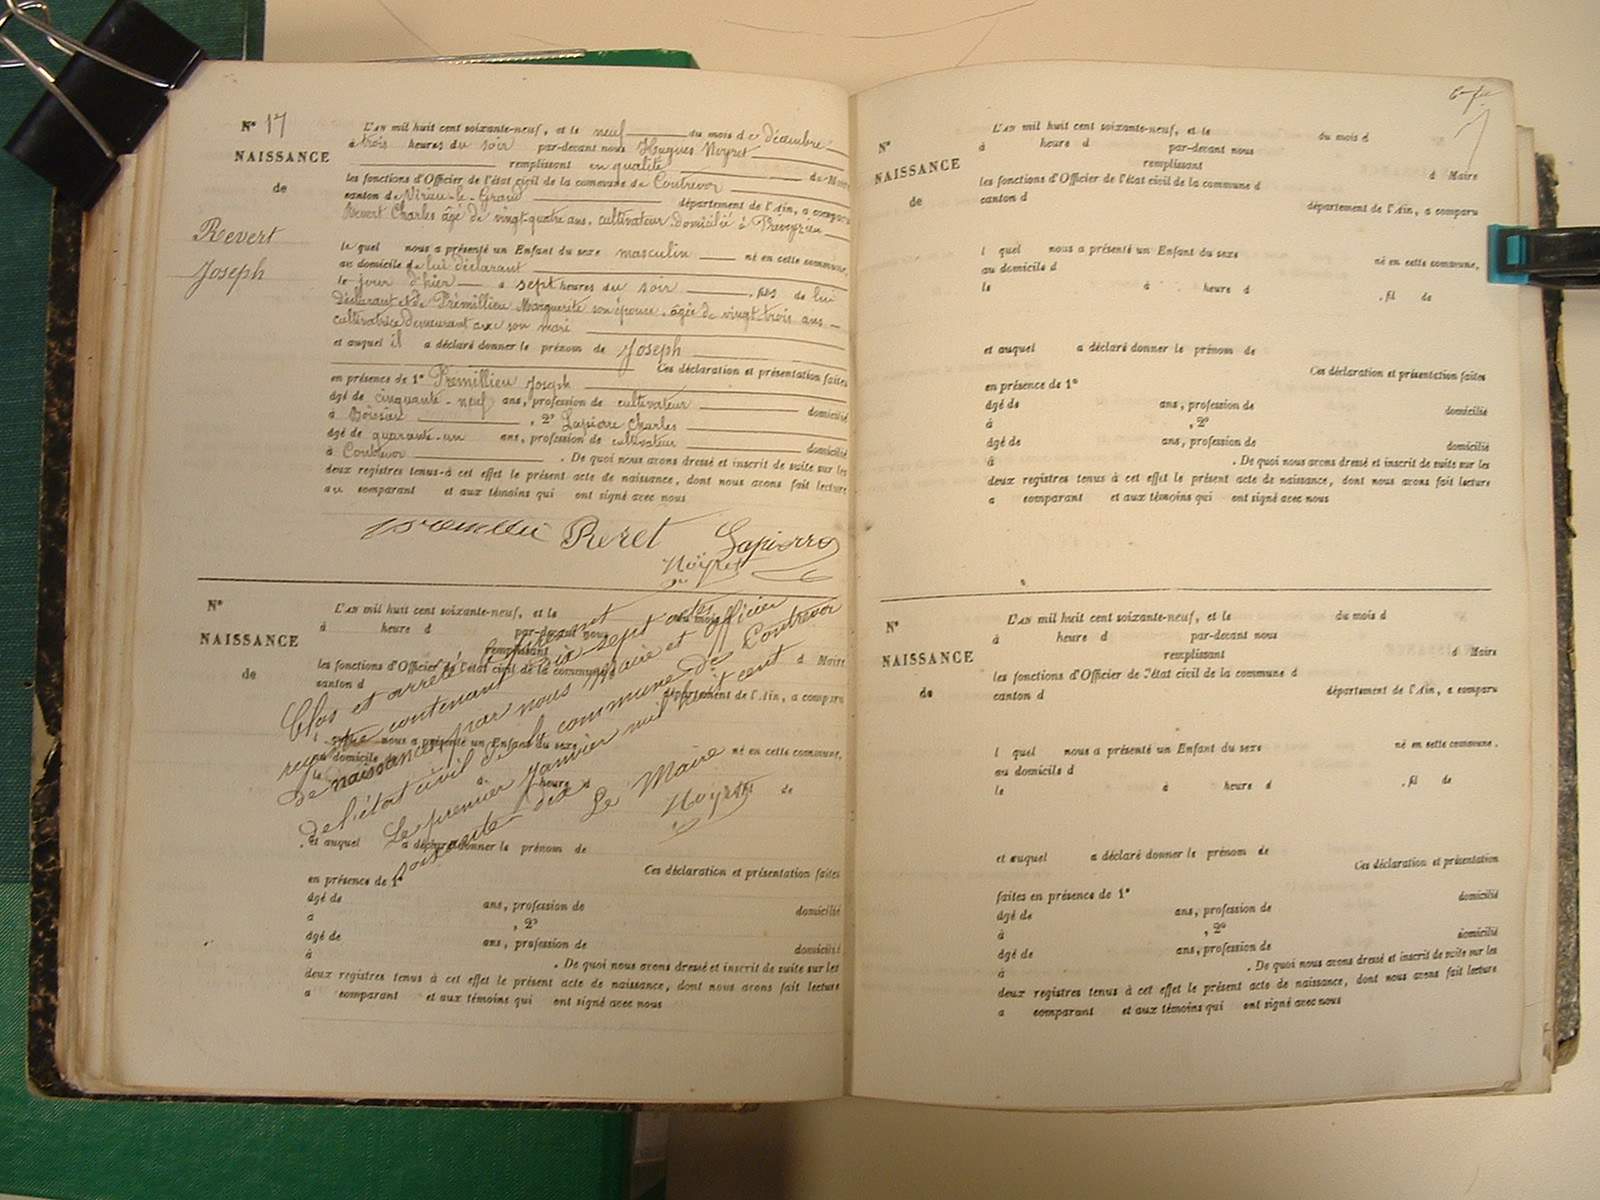 N° 17
NAISSANCE
de
Revert
Joseph
L'AN mil huit cent soixante-neuf, et le neuf du mois de décembre
à trois heures du soir par-devant nous Hugues Noyret
remplissant en qualité de Maire
les fonctions d'Officier de l'état civil de la commune de Contrevoz
canton de Virieu-le-Grand département de l'Ain, a comparu
Revert Charles âgé de vingt-quatre ans, cultivateur, domicilié à Preveyzieu
le quel nous a présenté un Enfant du sexe masculin né en cette commune,
au domicile de lui déclarant
le jour d'hier à sept heures du soir , fils de lui
déclarant et de Prémillieu Marguerite son épouse, âgée de vingt-trois ans
cultivatrice demeurant avec son mari
et auquel il a déclaré donner le prénom de Joseph
Ces déclaration et présentation faites
en présence de 1° Prémillieu Joseph
âgé de cinquante-neuf ans, profession de cultivateur domicilié
à Boissieu , 2° Lapierre Charles
âgé de quarante-un ans, profession de cultivateur domicilié
à Contrevoz . De quoi nous avons dressé et inscrit de suite sur les
deux registres tenus à cet effet le présent acte de naissance, dont nous avons fait lecture
au comparant et aux témoins qui ont signé avec nous
Revet Lapierre
Noyret
N°
NAISSANCE
de
L'AN mil huit cent soixante-neuf, et le du mois d
à heure d par-devant nous
remplissant
les fonctions d'Officier de l'état civil de la commune d d Maire
canton d département de l'Ain, a comparu
l quel nous a présenté un Enfant du sexe né en cette commune,
au domicile d
le à heure d de
et auquel a déclaré donner le prénom de
Ces déclaration et présentation faites
en présence de 1°
âgé de ans, profession de domicilié
à , 2°
âgé de ans, profession de domicilié
à . De quoi nous avons dressé et inscrit de suite sur les
deux registres tenus à cet effet le présent acte de naissance, dont nous avons fait lecture
a comparant et aux témoins qui ont signé avec nous
Clos et arrêté le présent
registre contenant dix sept actes
de naissances par nous Maire et officier
de l'état civil de la commune de Contrevoz
Le premier Janvier mil huit cent
soixante-dix
Le Maire
Noyret
N°
NAISSANCE
de
L'AN mil huit cent soixante-neuf, et le du mois d
à heure d par-devant nous
remplissant d Maire
les fonctions d'Officier de l'état civil de la commune d
canton d département de l'Ain, a comparu
l quel nous a présenté un Enfant du sexe né en cette commune,
au domicile d
le à heure d , fil de
et auquel a déclaré donner le prénom de
Ces déclaration et présentation faites
en présence de 1°
âgé de ans, profession de domicilié
à , 2°
âgé de ans, profession de domicilié
à . De quoi nous avons dressé et inscrit de suite sur les
deux registres tenus à cet effet le présent acte de naissance, dont nous avons fait lecture
a comparant et aux témoins qui ont signé avec nous
N°
NAISSANCE
de
L'AN mil huit cent soixante-neuf, et le du mois d
à heure d par-devant nous
remplissant d Maire
les fonctions d'Officier de l'état civil de la commune d
canton d département de l'Ain, a comparu
l quel nous a présenté un Enfant du sexe né en cette commune,
au domicile d
le à heure d , fil de
et auquel a déclaré donner le prénom de
Ces déclaration et présentation
faites en présence de 1° domicilié
âgé de ans, profession de
à , 2° domicilié
âgé de ans, profession de
à . De quoi nous avons dressé et inscrit de suite sur les
deux registres tenus à cet effet le présent acte de naissance, dont nous avons fait lecture
a comparant et aux témoins qui ont signé avec nous